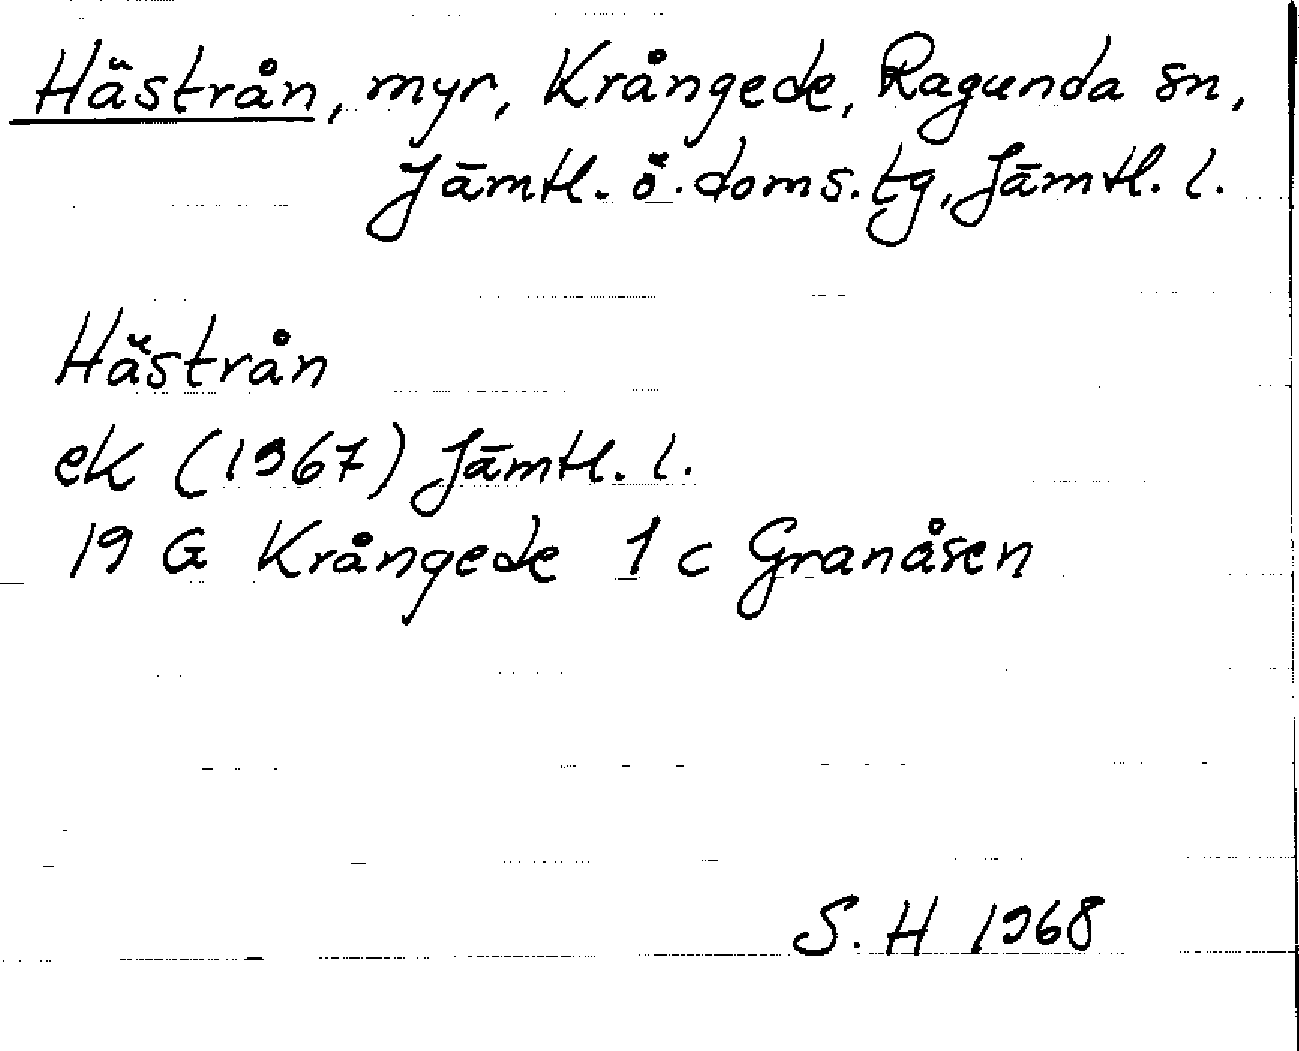 Hästrån, myr, Krångede, Ragunda sn,
Jämtl. ö. doms.tg, Jämtl. l.
Hästrån
ek (1967) Jämtl. l.
19 G Krångede 1 c Granåsen
S. H 1968